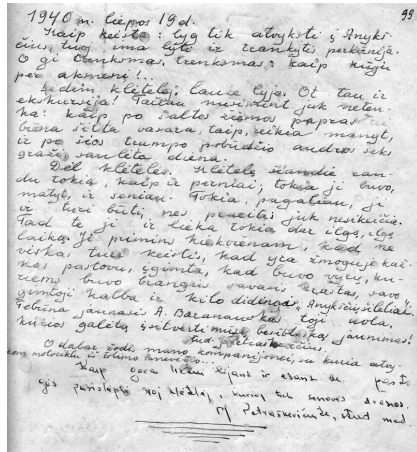 99
1940 m. liepos 19 d.
Kaip keista: lyg tik atvyksti į Anykš-
čius, tuoj ima lyti ir trankytis perkūnija.
O gi trenksmas, trenksmas: kaip kūju
per akmenį!..
Sėdim klėtelėj, lauke lyja. Ot tau ir
ekskursija! Tačiau nusiminti juk neten-
ka: kaip po šaltos žiemos paprastai
būna šilta vasara, taip, reikia manyt,
ir po šios trumpo pobūdžio audros seks
graži, saulėta diena.
Dėl klėtelės. Klėtelę šiandie ran-
du tokią, kaip ir pernai; tokia ji buvo,
matyt, ir seniau. Tokia, pagaliau, ji
ir turi būti, nes praeitis juk nesikeičia.
Tad te ji ir lieka tokia dar ilgą, ilgą
laiką. Ji primins kiekvienam, kad ne
viskas turi keistis, kad yra žmoguje kaž-
kas pastovu, įgimta, kad buvo vyrų, ku-
riems buvo brangus savasis kraštas, savo
gimtoji kalba ir kilo didingas, Anykščių šilelis.
Tebūna jaunasis A. Baranauskas toji uola,
kurios galėtų sutverti mūsų besiblaškąs jaunimas!
Stud.
O dabar žodis mano kompanijonei, su kuria atvy-
kom motociklu iš tolimo Panevėžio
Kaip gera lietui lijant ir esant
pasislėpti šioj klėtelėj, kurioj tiek senovės dvasios.
Petraškevičiūtė, stud. med.